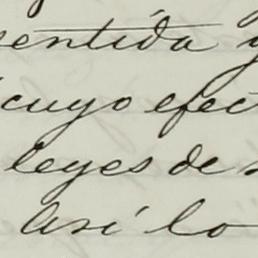 sentida y
cuyo efect
leyes de
Así lo